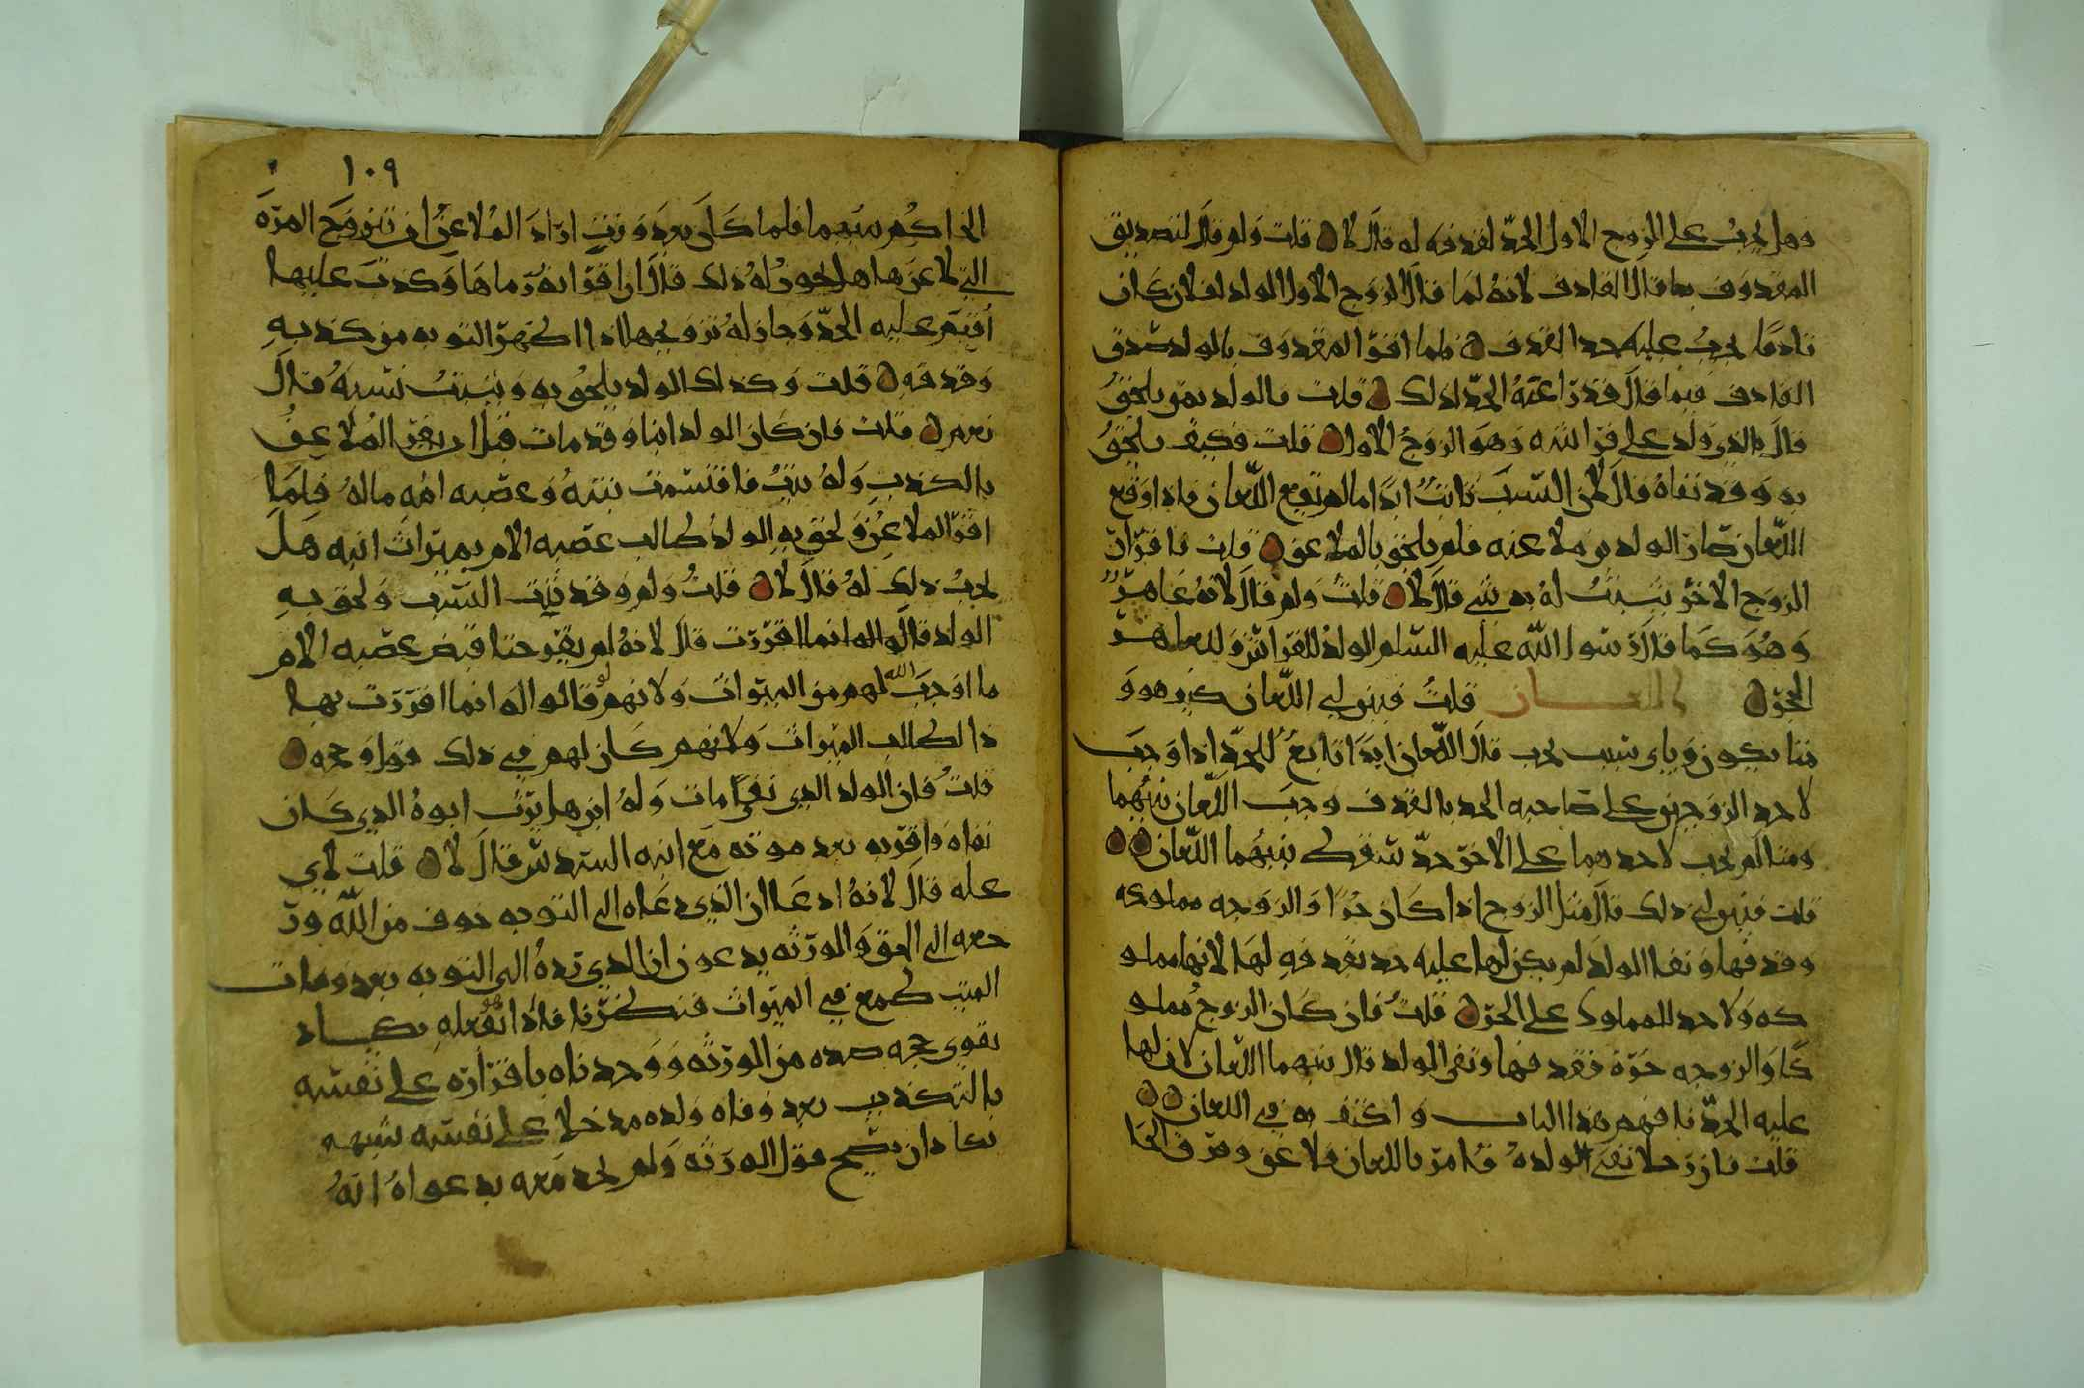 وهل يجب على الزوج الاول الحد لقذفه له قال لا ن قلت ولم قال لتصديق
المقذوف بما قال القاذف لانه لما قال الزوج الاول الولد لفلان كان
قاذفا يجب عليه حد القذف ن فلما اقر المقذوف بالولد صدق
القاذف فيما قال فدرا عنه الحد لذلك ن قلت فالولد بمن يلحق
قال بالذي ولد على فراشه وهو الزوج الاول ن قلت فكيف يلحق
به وقد نفاه قال لان النسب ثابت ابدا ما لم يقع اللعان فاذا وقع
اللعان صار الولد بن ملاعنه فلم يلحق بالملاعن ن قلت فاقرار
الزوج الاخر يثبت له به شي قال لا ن قلت ولم قال لانه عاهر
وهو كما قال رسول الله عليه السلم الولد للفراش وللعاهر
الحجر ن اللعان قلت فبين لي اللعان كيف هو و
متا يكون وباي سبب يجب قال اللعان ابدا تابع للحد اذا وجب
لاحد الزوجين على صاحبه الحد بالقذف وجب اللعان بينهما
ومتا لم يجب لاحدهما على الاخر حد سقط بينهما اللعان ن ن
قلت فبين لي ذلك قال مثل الزوج اذا كان حرا والزوجه مملوكه
وقذفها ونفا الولد لم يكن لها عليه حد بقذفه لها لانها مملو
كه ولا حد للمملوك على الحر ن قلت فان كان الزوج مملو
كا والزوجه حرة فقذفها ونفى الولد قال بينهما اللعان لان لها
عليه الحد فافهم هذا الباب واكتف به في اللعان ن ن
قلت فان رجلا نفى الولده فامر باللعان فلاعن وفرق الحا
١٠٩
الحاكم بينهما فلما كان بعد وقت اراد الملاعن ان يتزوج المره
التي لاعنها هل يجوز له ذلك قال ان اقر انه رماها وكذب عليها
اقيم عليه الحد وجاز له تزويجها اذا اظهر التوبه من كذبه
وقذفه ن قلت وكذلك الولد يلحق به ويثبت نسبه قال
نعم ن قلت فان كان الولد ابنا وقد مات قبل ان يقر الملاعن
بالكذب وله بنت فاقتسمت بنته وعصبه امه ماله فلما
اقر الملاعن ولحق به الولد طالب عصبه الام بميراث ابنه هل
يجب ذلك له قال لا ن قلت ولم وقد ثبت النسب ولحق به
الولد قالوا له انما اقررت قال لانه لم يقر حتا قبض عصبه الام
ما اوجب الله لهم من الميراث ولانهم لو قالوا له انما اقررت بها
ذا لطلب الميراث ولانهم كان لهم في ذلك قول وحجه ن
قلت فان الولد الذي نفى مات وله ابن هل يرث ابوه الذي كان
نفاه واقر به بعد موته مع ابنه السدس قال لا ن قلت لاي
عله قال لانه ادعا ان الذي دعاه الى التوبه خوف من الله ور
جعه الى الحق والورثه يدعون ان الذي رده الى التوبه بعد ومات
الميت طمع في الميراث فنظرنا فاذا
يقوي حجه ضده من الورثه ووجدناه باقراره على نفسه
بالتكذيب بعد وفاه ولده مدخلا على نفسه شبهه
فكاد ان يصح قول الورثه ولم نجد معه بدعواه انه